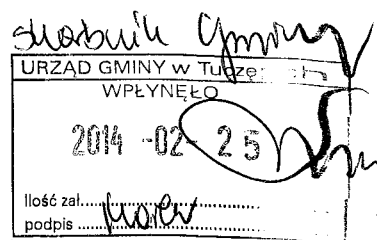 skarbnik Gminy
URZĄD GMINY w Tuczę
WPŁYNĘŁO
2014 -02- 25
Ilość zał.
podpis